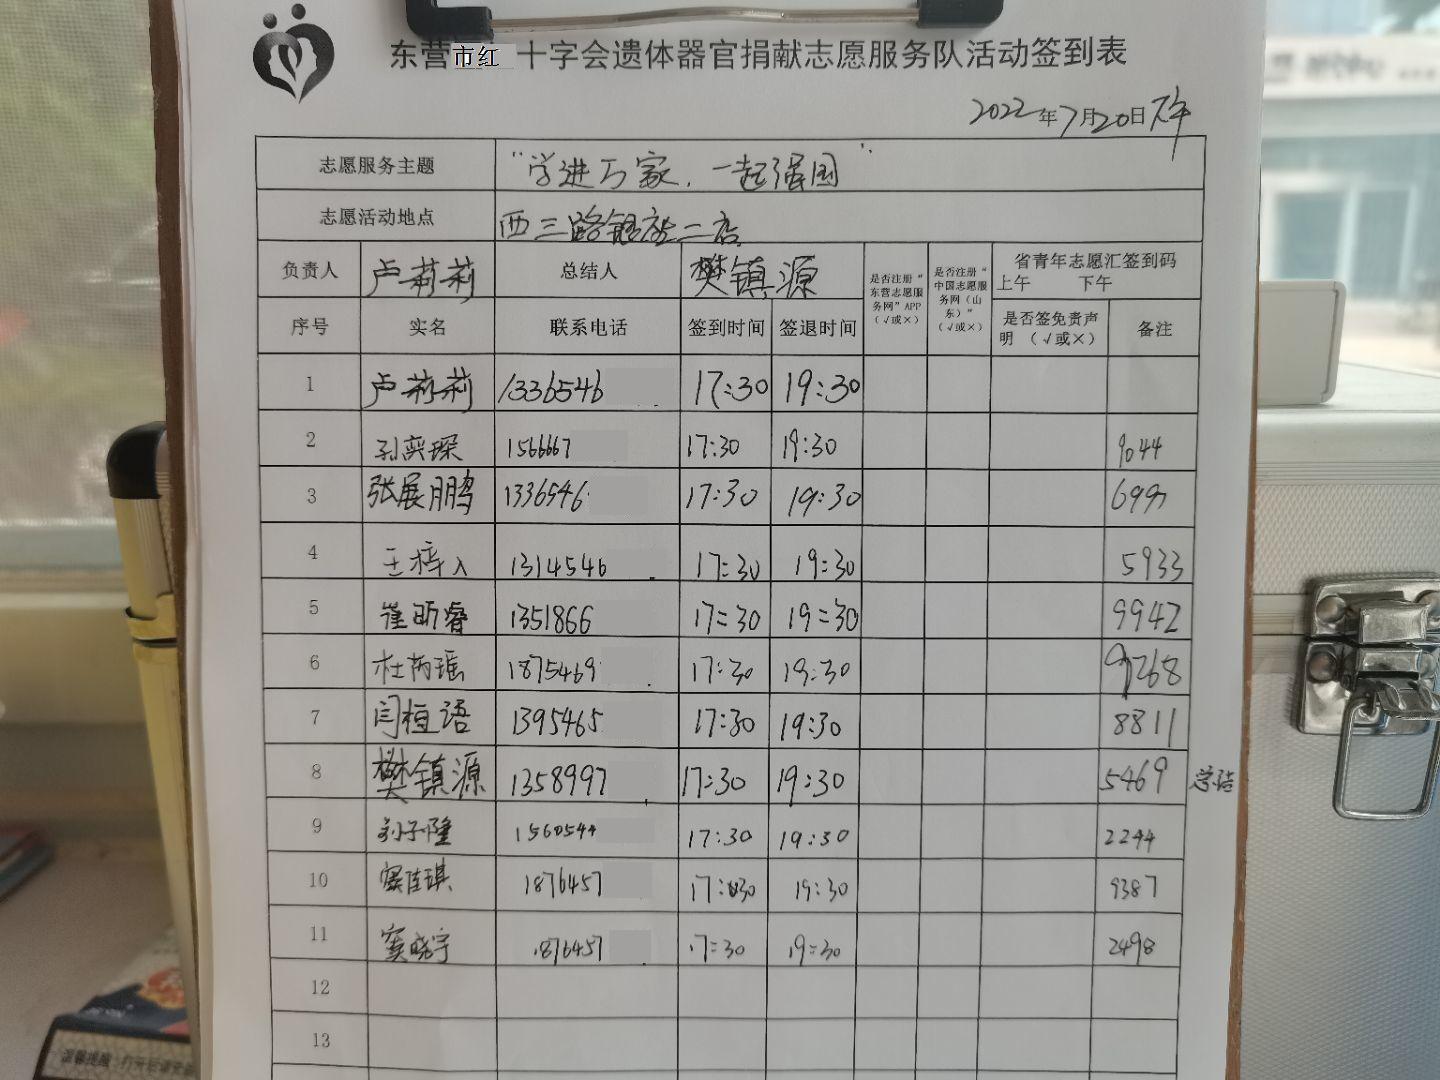 东营市红十字会遗体器官捐献志愿服务队活动签到表
2022年7月20日下午
志愿服务主题 "学进万家，一起强国"
志愿活动地点 西三路银座二店
负责人 卢莉莉 总结人 樊镇源 是否注册“东营志愿服务网”APP（√或×） 是否注册“中国志愿服务网（山东）”（√或×） 省青年志愿汇签到码 上午 下午
序号 实名 联系电话 签到时间 签退时间 是否签免责声明（√或×） 备注
1 卢莉莉 1336546 17:30 19:30
2 孙奕琛 1566667 17:30 19:30 9044
3 张展鹏 1336546 17:30 19:30 699
4 王梓入 1314546 17:30 19:30 5933
5 崔昕睿 1351866 17:30 19:30 9942
6 杜芮瑶 1875469 17:30 19:30 9268
7 闫桓语 1395465 17:30 19:30 8811
8 樊镇源 1358997 17:30 19:30 5469 总结
9 刘子隆 1560544 17:30 19:30 2244
10 窦佳琪 1876457 17:30 19:30 9387
11 窦晓宇 1876457 17:30 19:30 2498
12
13
温馨提醒：打开后请